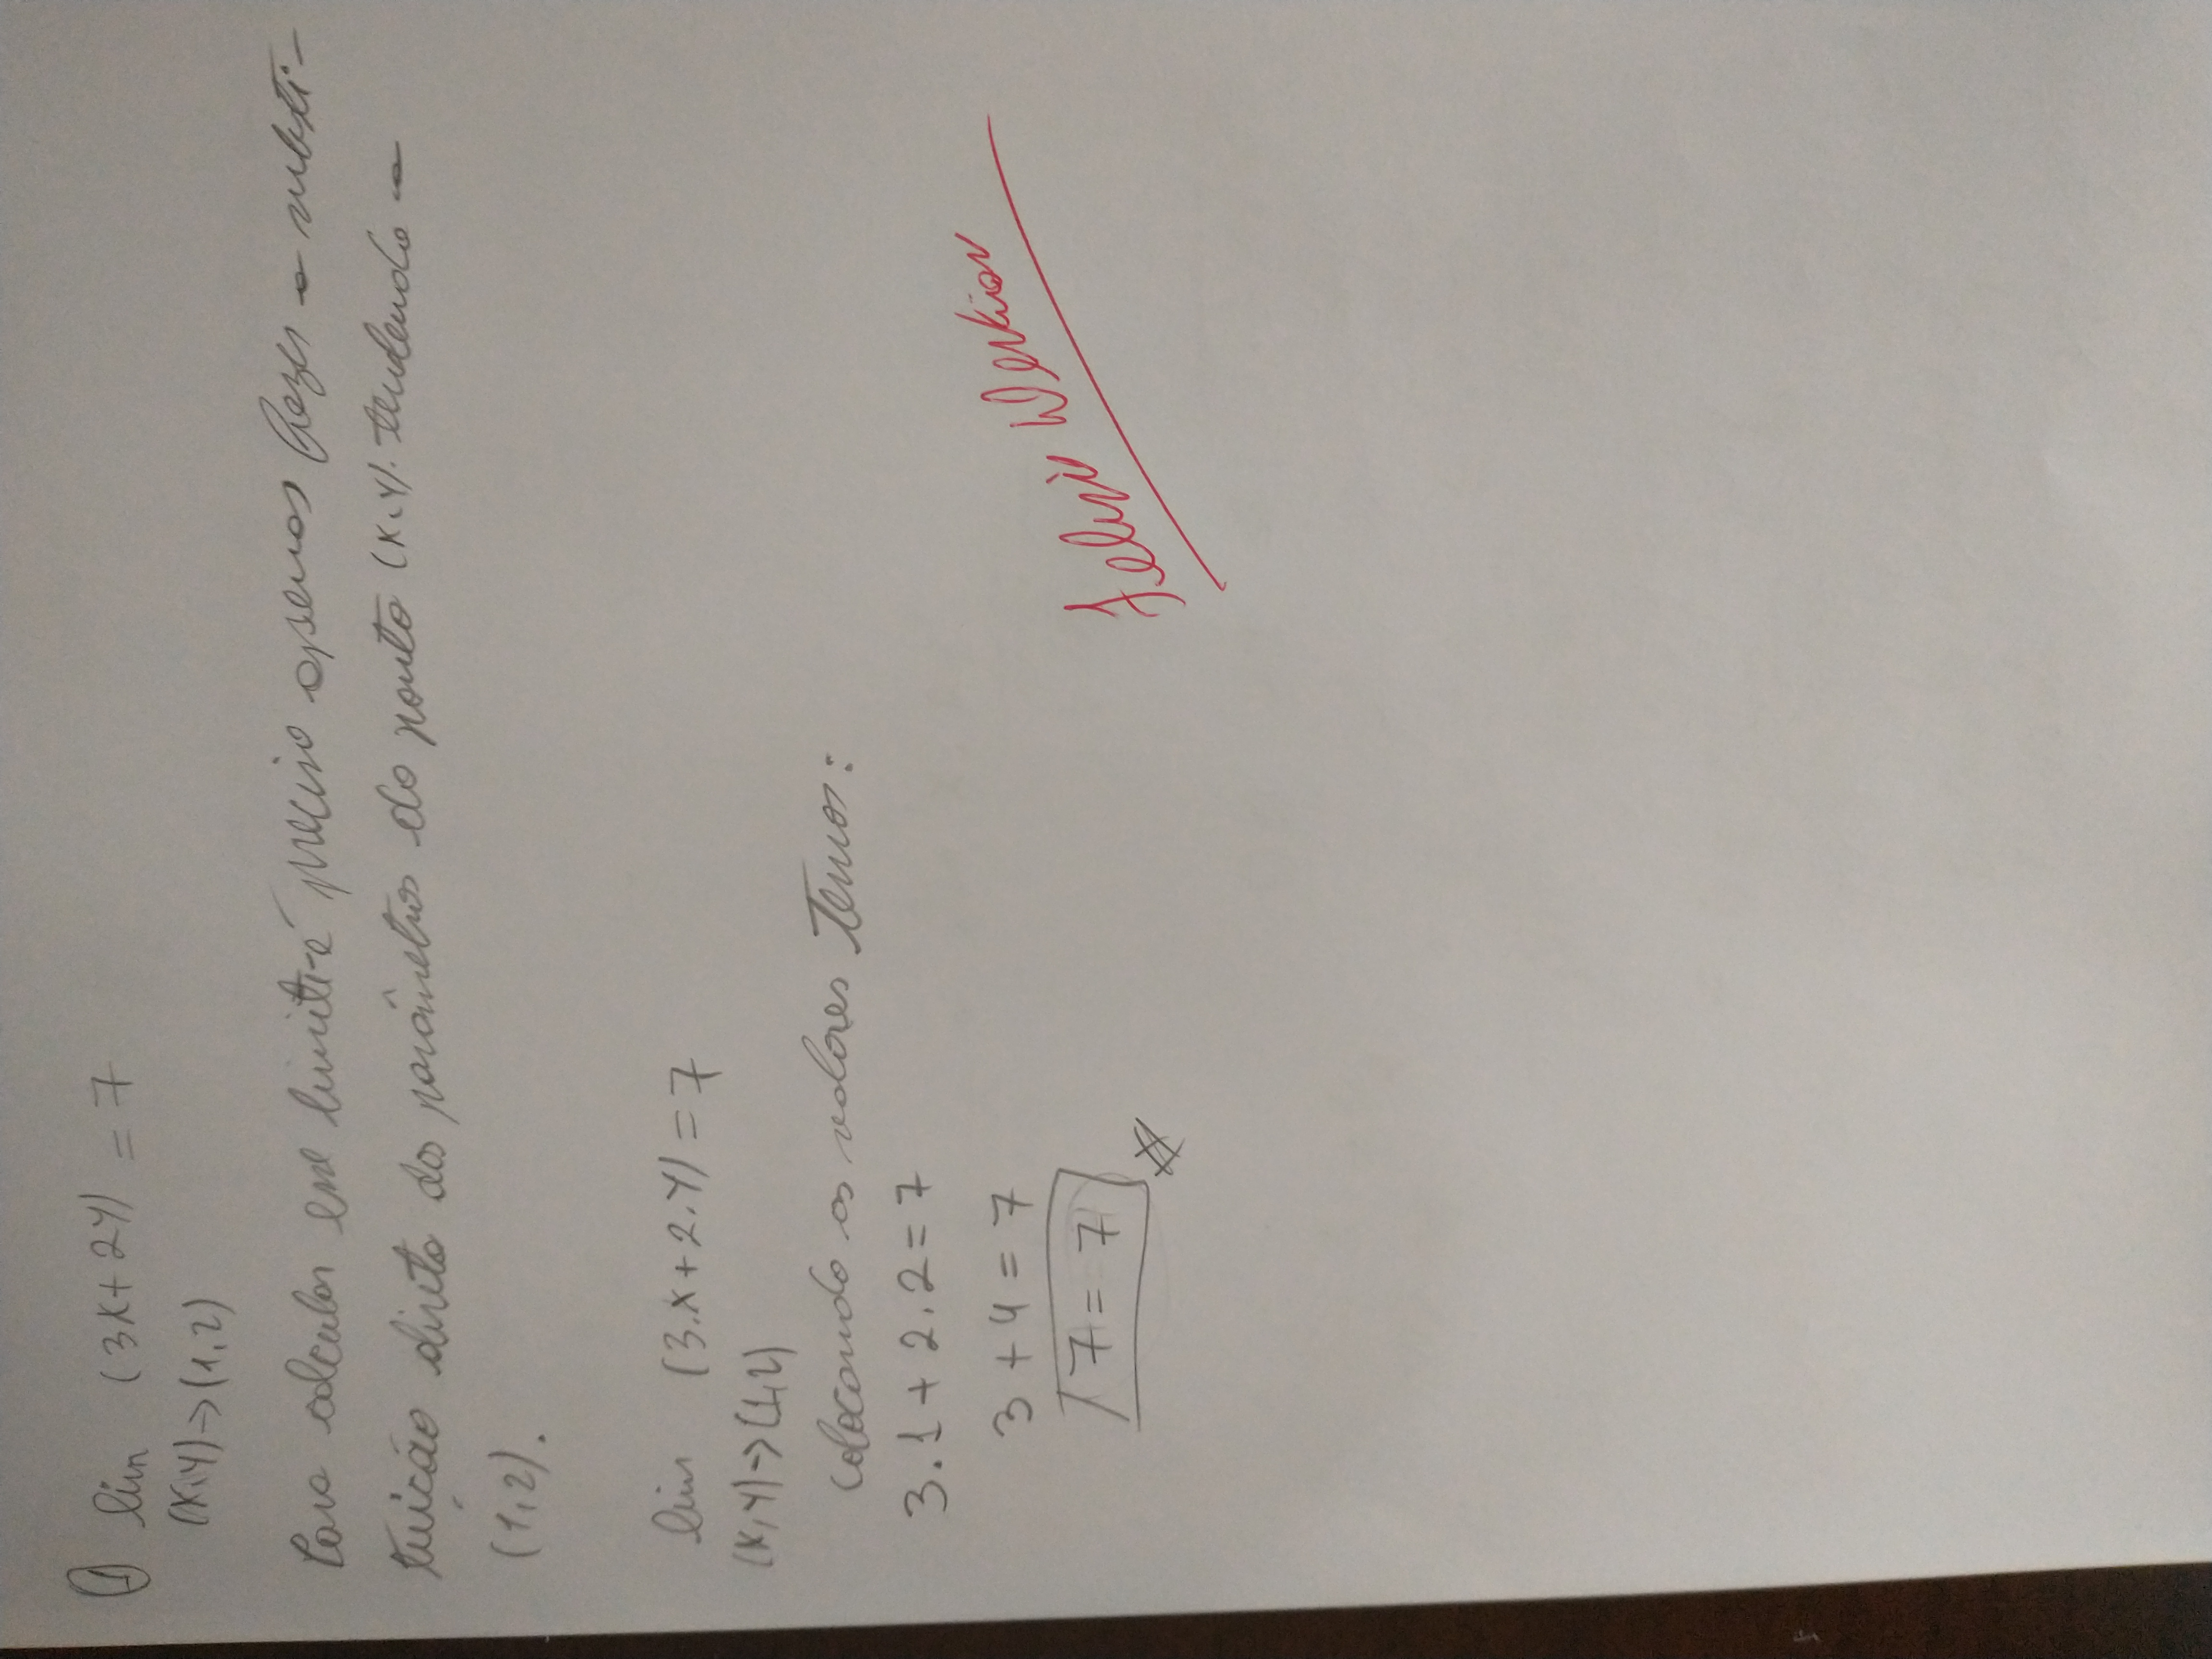 1 lim (3x+2y) = 7
(x,y)→(1,2)
Para calcular esse limite é preciso apenas fazer a substi-
tuição direta dos parâmetros do ponto (x,y). tendendo a
(1,2).
lim (3.x+2.y) = 7
(x,y)→(1,2)
colocando os valores Temos:
3.1 + 2.2 = 7
3 + 4 = 7
7 = 7